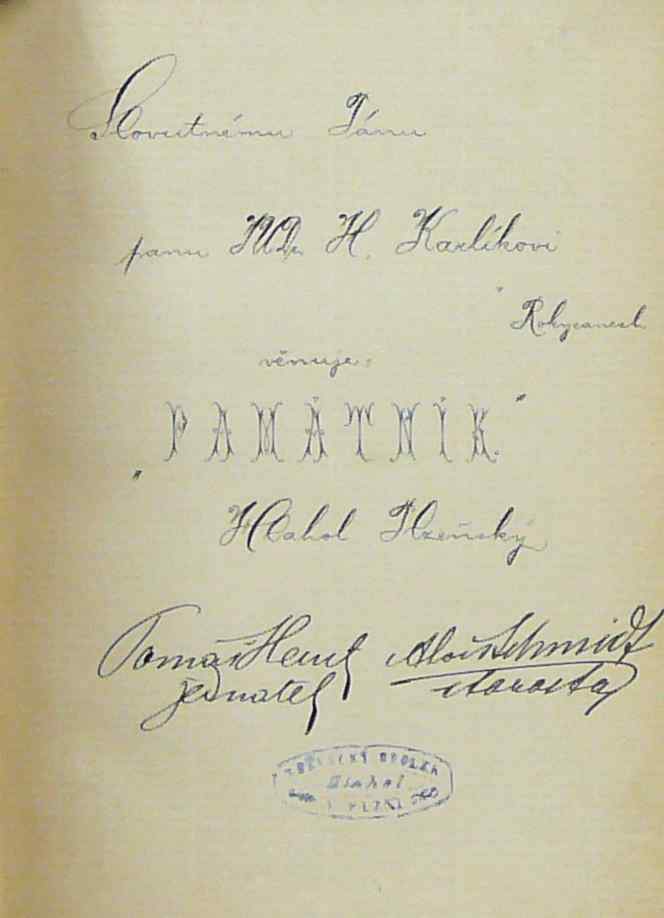 Slovutnému Pánu
panu MDr H. Karlíkovi
v Rokycanech
věnuje:
„PAMÁTNÍK."
Hlahol Plzeňský
Tomáš
Alois Schmidt
jednatel
starosta
ZPĚVÁCKÝ SPOLEK
Hlahol
V PLZNI